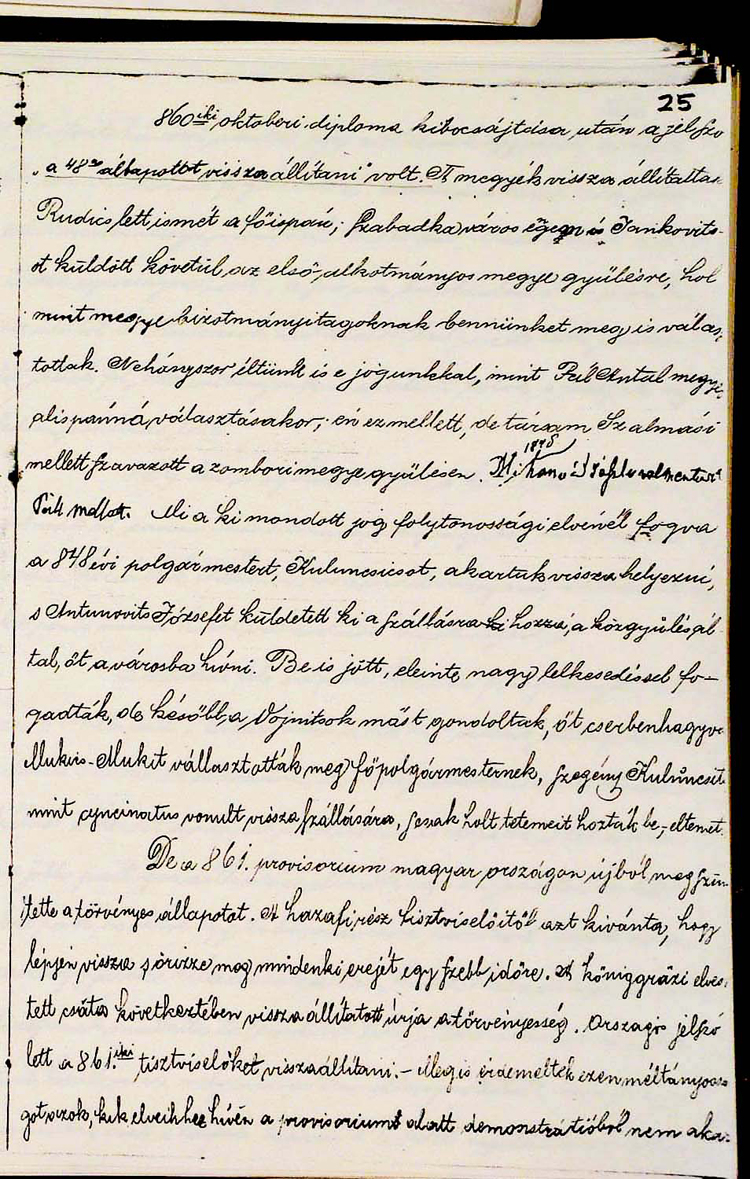 25
860iki oktoberi diploma kibocsájtása után a jelszo
„a 48as állapottot vissza állítani" volt. A megyék vissza állíttattak
Rudics lett ismét a főispán; Szabadka város és Jankovits-
ot küldött követül, az első alkotmányos megye gyülésre, hol
mint megye bizotmányi tagoknak bennünket meg is válasz
tottak. Nehányszor éltünk is e jogunkkal, mint Pál Antal megyei
alispánná választásakor; én ez mellett, de társam Szalmási
mellett szavazott a zombori megye gyülésen. 1848
Pál mellett. Mi a ki mondott jog folytonossági elvénél fogva
a 848 évi polgármestert, Kuluncsicsot, akartuk vissza helyezni,
s Antunovits Józsefet küldetett ki a szállásra hozzá, a közgyülés ál
tal, őt a városba hívni. Be is jött, eleinte nagy lelkesedéssel fo-
gadták, de később a Vojnitsok mást gondoltak, őt cserbenhagyva
Mukits-Mukit vállasztották meg főpolgármesternek, szegény Kuluncsit
mint cyncinatus vonult vissza szállására, s csak holt tetemeit hozták be, eltemet.
De a 861. provisorium magyar országon újból meg szün
tette a törvényes állapotot. A hazafi rész tisztviselőitől azt kivánta, hogy
lépjen vissza s őrizze meg mindenki erejét egy szebb időre. A königgräzi elvesz
tett csata következtében vissza állítatott újra a törvényesség. Országos jelszó
lett a 861.iki tisztviselőket visszaállítani. – Meg is érdemelték ezen méltányossá
got azok, kik elveihhez híven a provisorium alatt demonstrátióból nem aka-